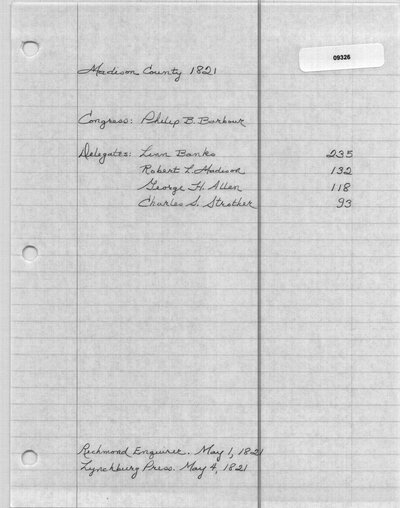 09326
Madison County 1821
Congress: Philip B. Barbour
Delegates: Linn Banks 235
Robert L. Madison 132
George H. Allen 118
Charles S. Strother 93
Richmond Enquirer. May 1, 1821
Lynchburg Press. May 4, 1821